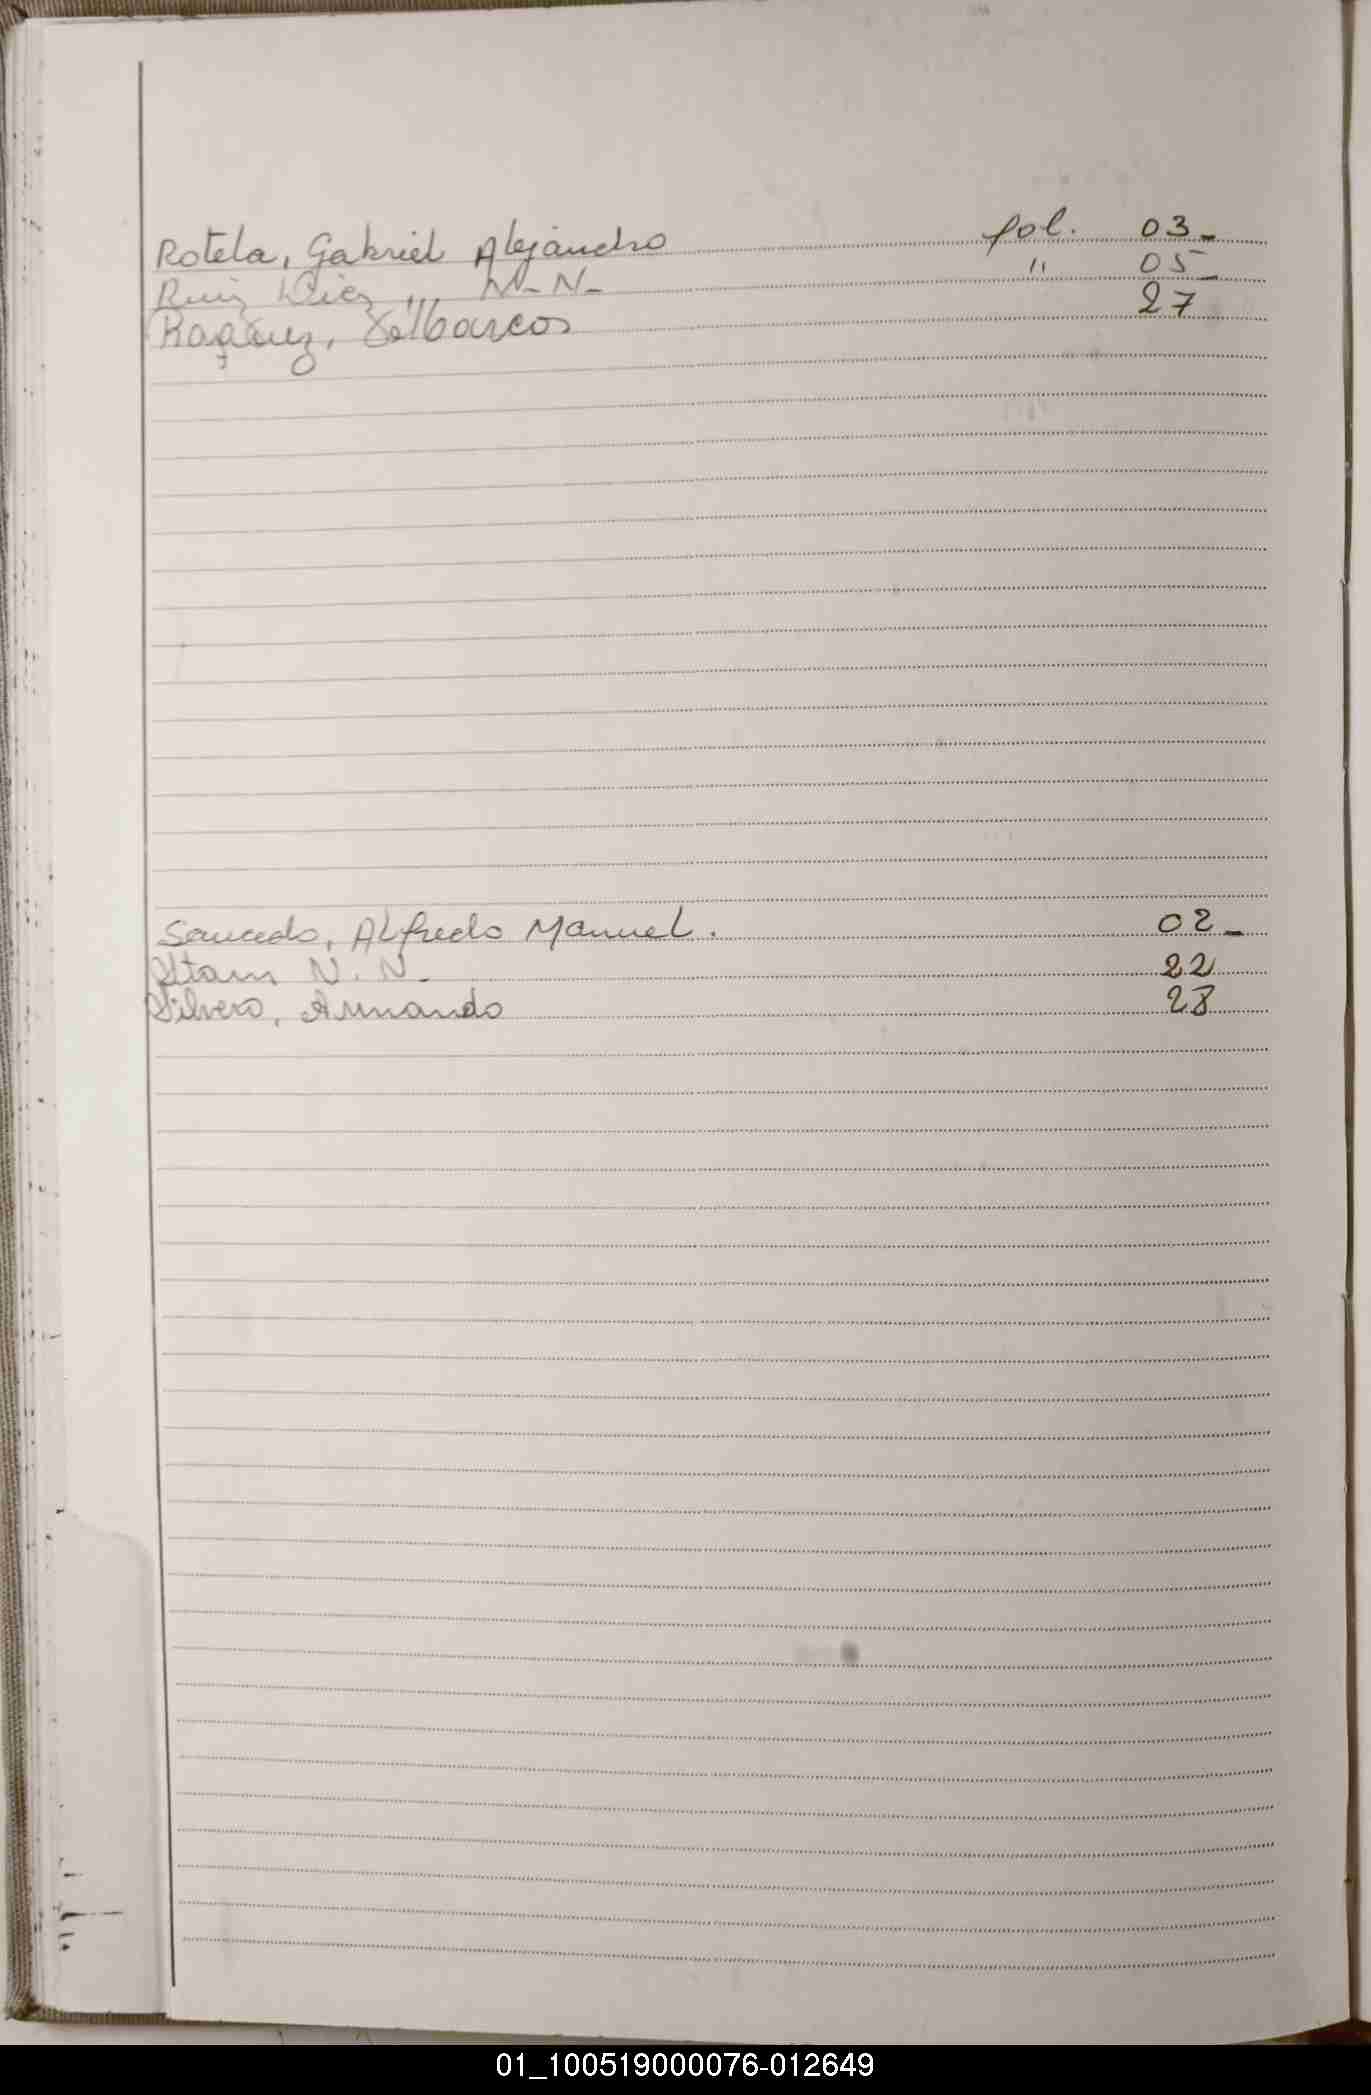 Rotela, Gabriel Alejandro fol. 03_
Ruiz Diez ,,, N_ N_ " 05_
27
Saucedo, Alfredo Manuel. 02_
Stam N. N_ 22
Silvero, Armando 28
01_100519000076-012649